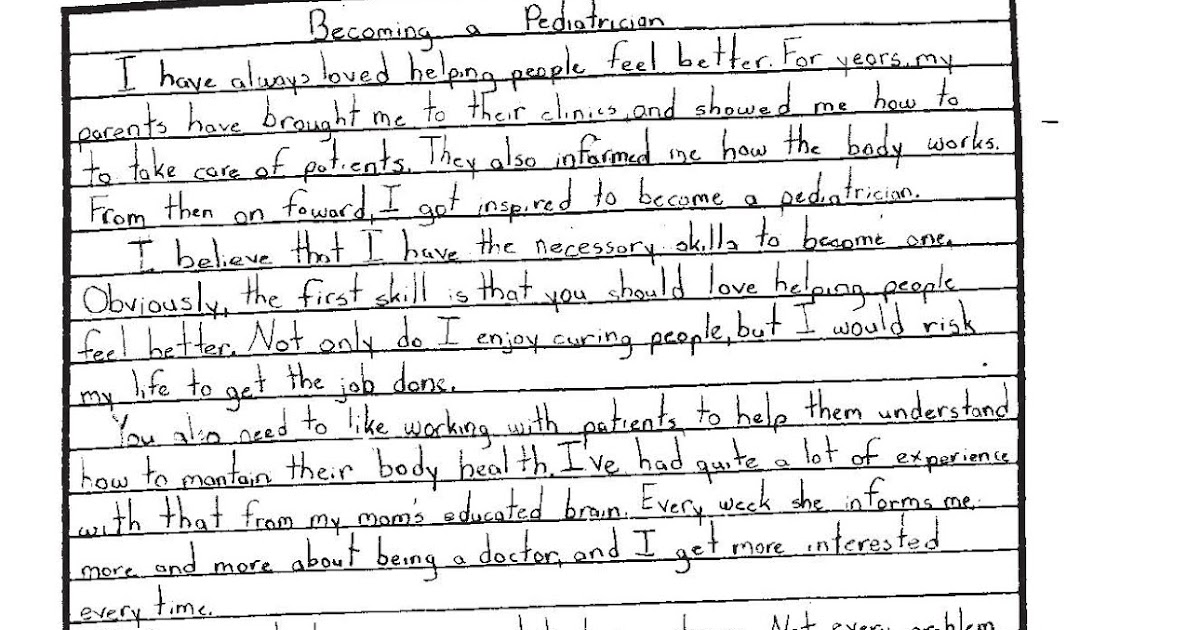 Becoming a Pediatrician
I have always loved helping people feel better. For years, my
parents have brought me to their clinics, and showed me how to
to take care of patients. They also informed me how the body works.
From then on foward, I got inspired to become a pediatrician.
I believe that I have the necessary skills to become one.
Obviously, the first skill is that you should love helping people
feel better. Not only do I enjoy curing people, but I would risk
my life to get the job done.
You also need to like working with patients to help them understand
how to mantain their body health. I've had quite a lot of experience
with that from my mom's educated brain. Every week she informs me
more and more about being a doctor, and I get more interested
every time.
Not every problem